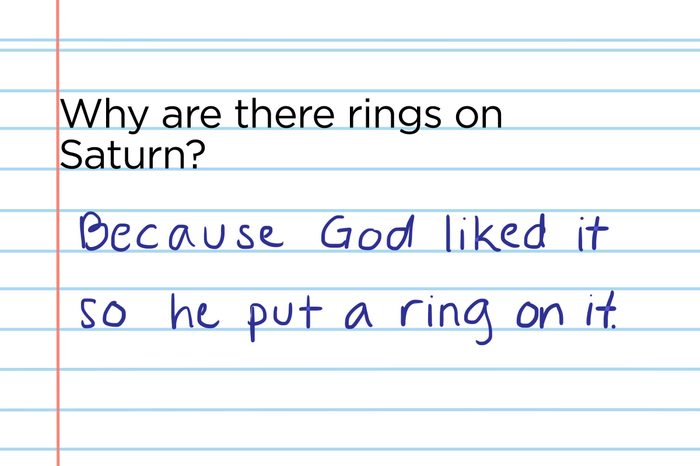 Why are there rings on
Saturn?
Because God liked it
so he put a ring on it.